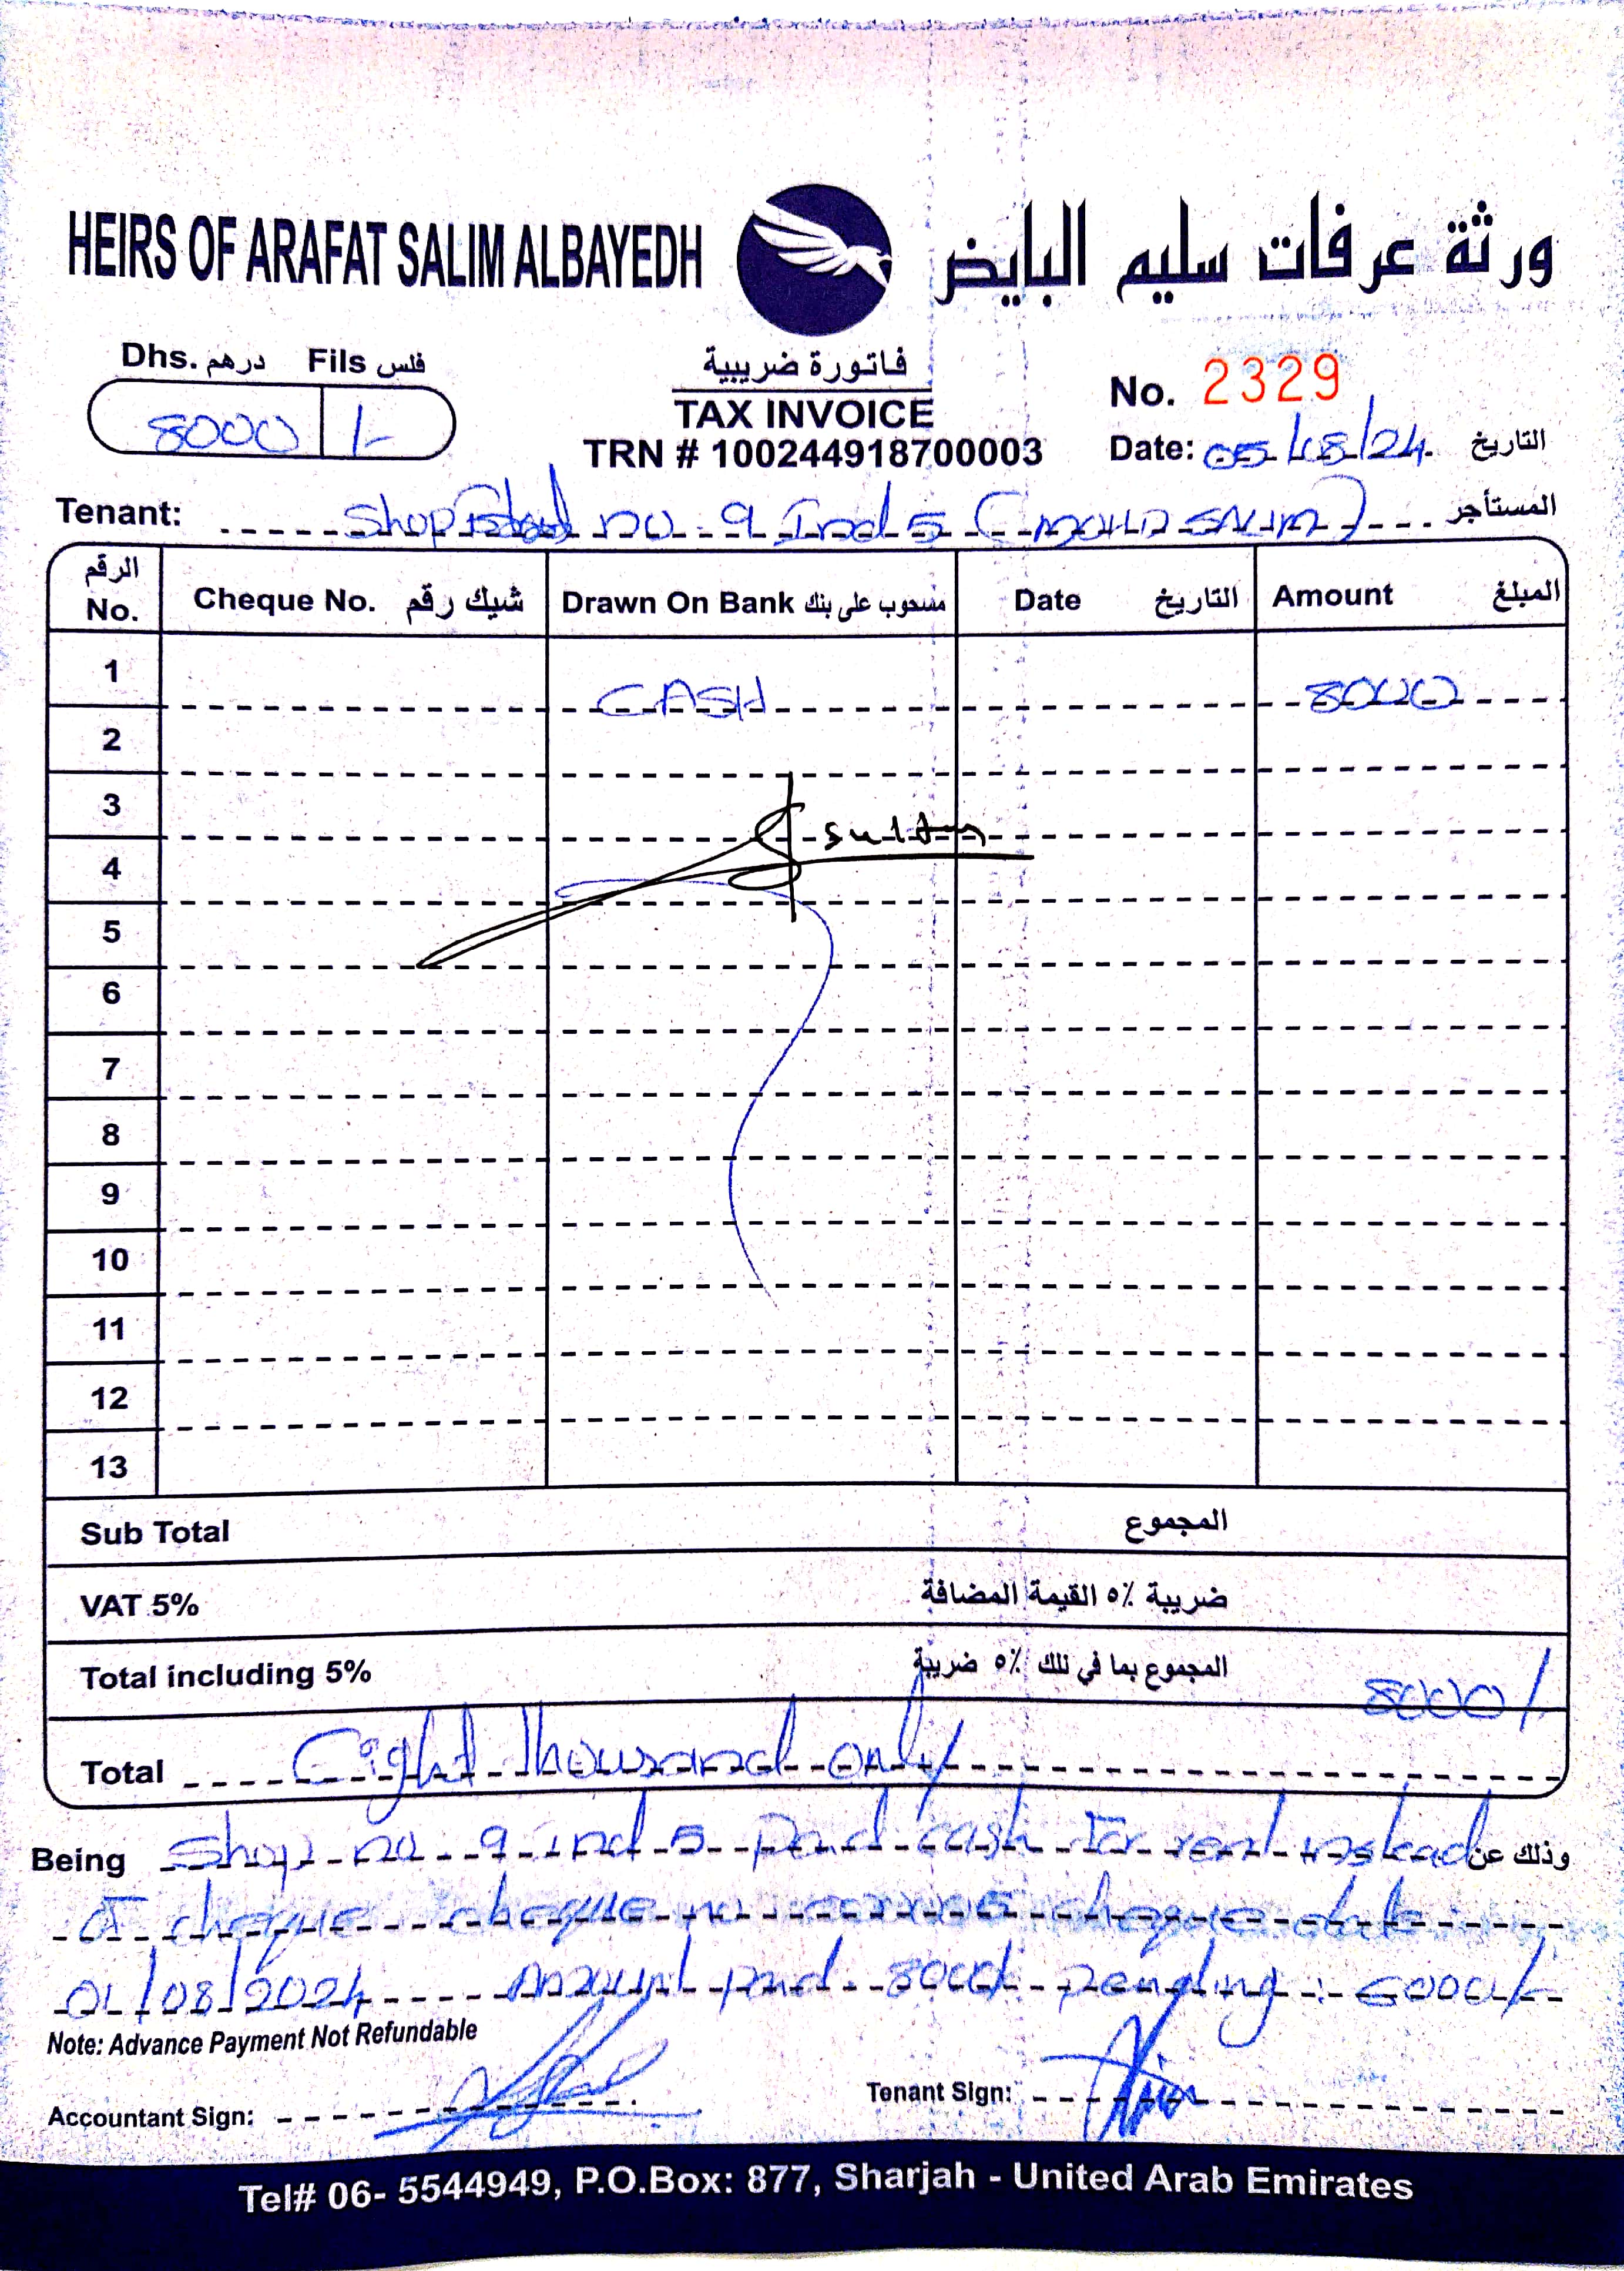 HEIRS OF ARAFAT SALIM ALBAYEDH ورثة عرفات سليم البايض
Dhs. درهم Fils فلس
8000 /-
فاتورة ضريبية
TAX INVOICE
TRN # 100244918700003
No. 2329
Date: 05/08/24 التاريخ
Tenant: Shop no. 9 Ind 5 المستأجر
الرقم No. Cheque No. شيك رقم Drawn On Bank مسحوب على بنك Date التاريخ Amount المبلغ
1 CASH 8000
2
3 sultan
4
5
6
7
8
9
10
11
12
13
Sub Total المجموع
VAT 5% ضريبة ٥٪ القيمة المضافة
Total including 5% المجموع بما في تلك ٥٪ ضريبة 8000/
Total Eight Thousand only
Being Shop no 9 ind 5 Paid cash For rent instead وذلك عن
of cheque cheque no cheque date
01/08/2024 Amount paid 8000/ pending : 6000/-
Note: Advance Payment Not Refundable
Accountant Sign: Tenant Sign:
Tel# 06- 5544949, P.O.Box: 877, Sharjah - United Arab Emirates